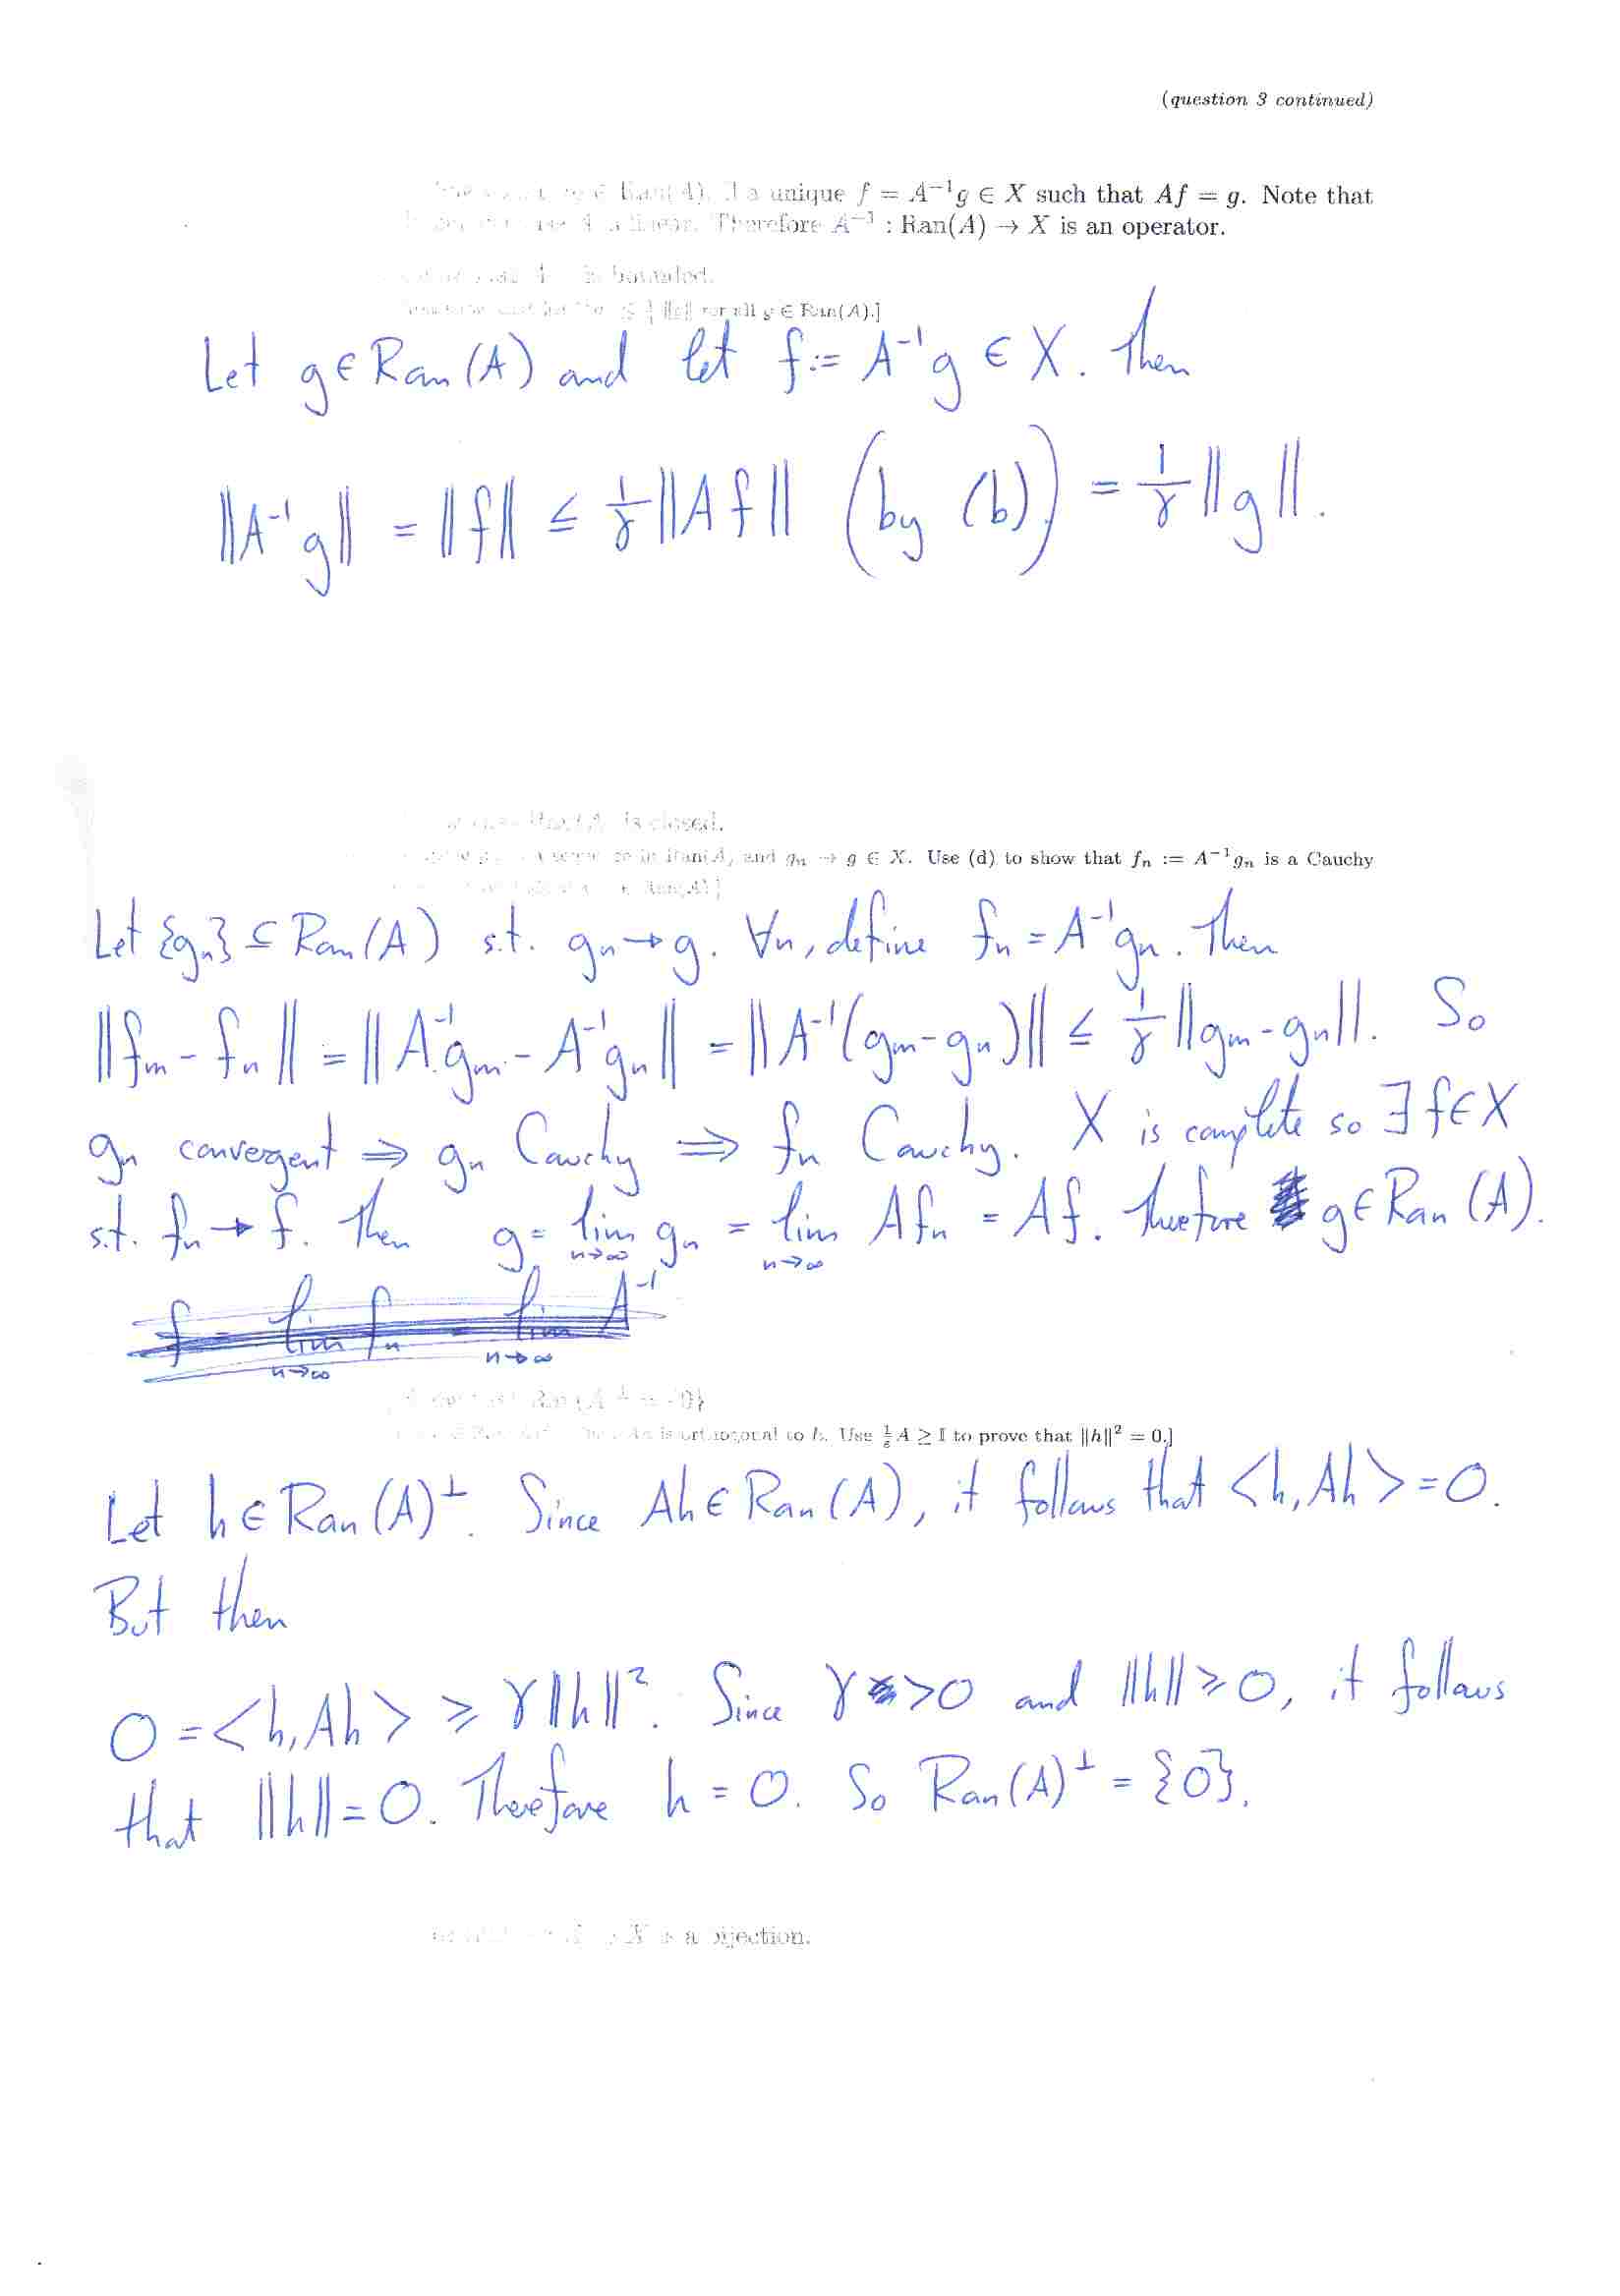 (question 3 continued)
∈ Ran(A), ∃ a unique f = A⁻¹g ∈ X such that Af = g. Note that
A is linear. Therefore A⁻¹ : Ran(A) → X is an operator.
is bounded.
‖g‖ for all g ∈ Ran(A).]
Let g ∈ Ran(A) and let f := A⁻¹g ∈ X. Then
‖A⁻¹g‖ = ‖f‖ ≤ 1/γ ‖Af‖ (by (b)) = 1/γ ‖g‖.
is closed.
in Ran(A) and gₙ → g ∈ X. Use (d) to show that fₙ := A⁻¹gₙ is a Cauchy
∈ Ran(A)]
Let {gₙ} ⊆ Ran(A) s.t. gₙ → g. ∀n, define fₙ = A⁻¹gₙ. Then
‖fₘ - fₙ‖ = ‖A⁻¹gₘ - A⁻¹gₙ‖ = ‖A⁻¹(gₘ - gₙ)‖ ≤ 1/γ ‖gₘ - gₙ‖. So
gₙ convergent ⇒ gₙ Cauchy ⇒ fₙ Cauchy. X is complete so ∃ f ∈ X
s.t. fₙ → f. Then g = lim n→∞ gₙ = lim n→∞ Afₙ = Af. Therefore g ∈ Ran(A).
f = lim n→∞ fₙ = lim n→∞ A⁻¹
Ran(A)⊥ = {0}
is orthogonal to h. Use 1/ε A ≥ I to prove that ‖h‖² = 0.]
Let h ∈ Ran(A)⊥. Since Ah ∈ Ran(A), it follows that <h, Ah> = 0.
But then
0 = <h, Ah> ≥ γ‖h‖². Since γ > 0 and ‖h‖ ≥ 0, it follows
that ‖h‖ = 0. Therefore h = 0. So Ran(A)⊥ = {0}.
X is a bijection.